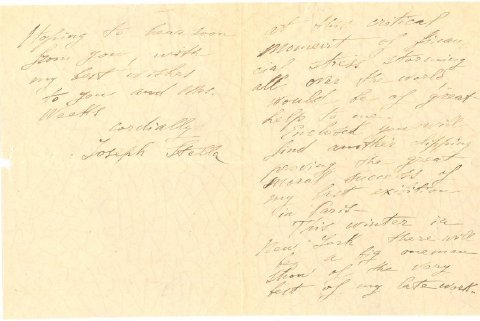 at this critical
moment of finan
cial stress storming
all over the world
would be of great
help to me.
Enclosed you will
find another clipping
proving the great
moral success of
my last exibition
in Paris—
This winter in
New York there will
be a big oneman
show of the very
best of my late work.
Hoping to hear soon
from you, with
my best wishes
to you and Mrs.
Weeks
cordially
Joseph Stella